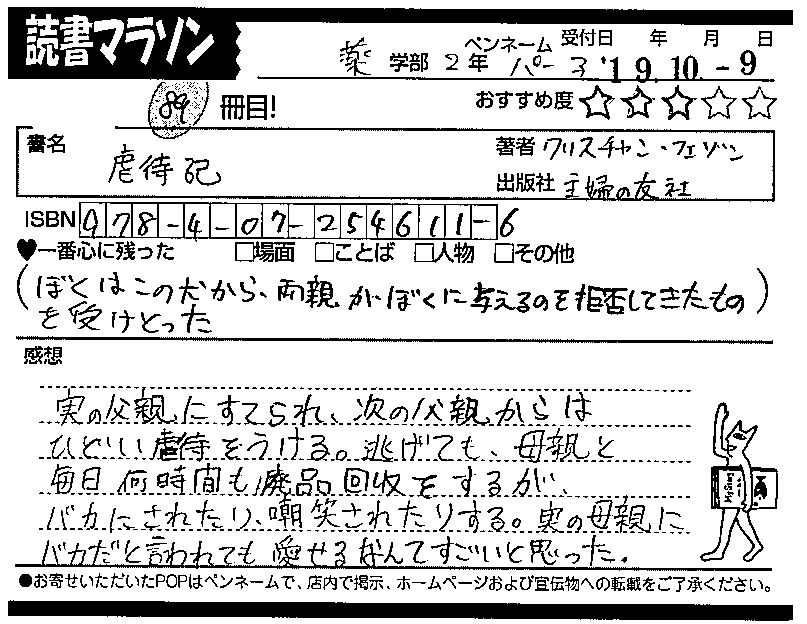 読書マラソン
薬 学部 2年 ペンネーム パーヌ 受付日 年 月 日 '19.10.-9
89 冊目! おすすめ度 ☆☆☆☆☆
書名 虐待記 著者 クリスチャン・フェゾン
出版社 主婦の友社
ISBN 978-4-07-254611-6
♥一番心に残った □場面 □ことば □人物 □その他
(ぼくはこの犬から、両親がぼくに与えるのを拒否してきたもの)
を受けとった
感想
実の父親にすてられ、次の父親からは
ひどい虐待をうける。逃げても、母親と
毎日何時間も廃品回収をするが、
バカにされたり、嘲笑されたりする。実の母親に
バカだと言われても愛せるなんてすごいと思った.
●お寄せいただいたPOPはペンネームで、店内で掲示、ホームページおよび宣伝物への転載をご了承ください。